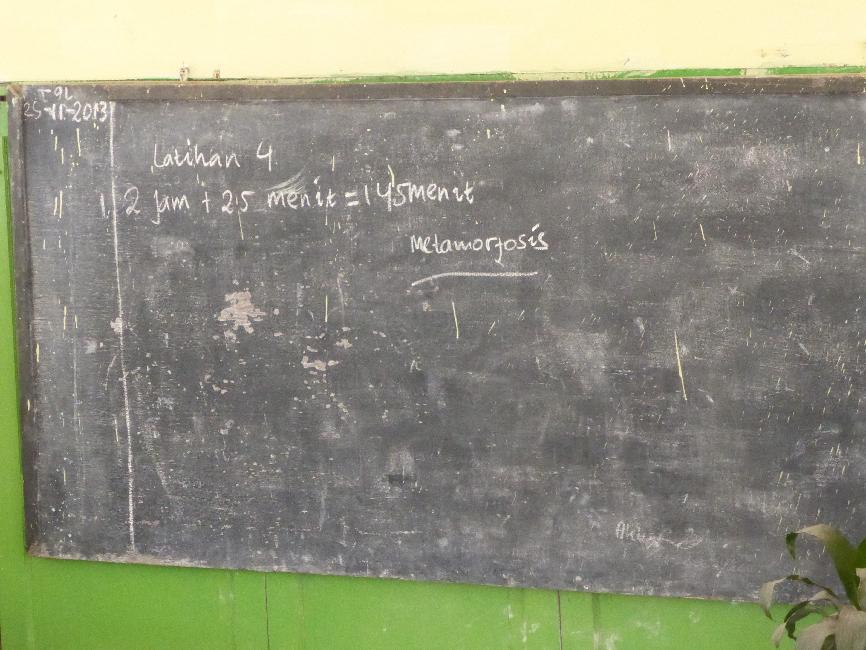 Tgl
25-11-2013
Latihan 4
1. 2 jam + 25 menit = 145 menit
Metamorfosis